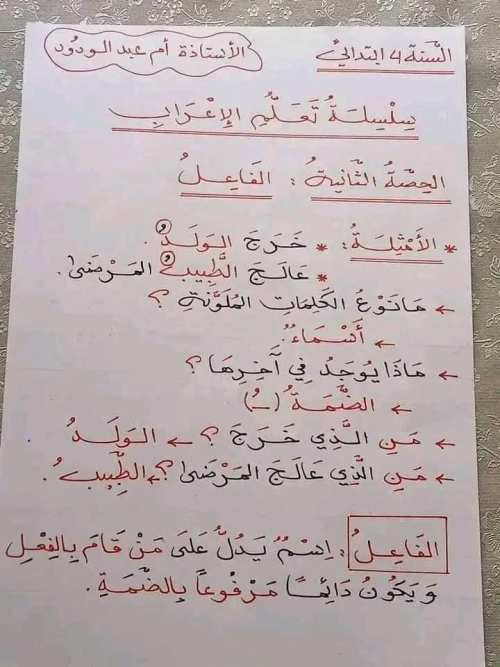 السَّنة 4 ابتدائيّ
الأستاذة أم عبد الودود
سِلْسِلَةُ تَعَلُّمِ الإِعْرَابِ
الحِصَّةُ الثَّانِيَةُ : الفَاعِلُ
* الأَمْثِلَةُ : * خَرَجَ الوَلَدُ .
* عَالَجَ الطَّبِيبُ المَرْضَى .
← مَانَوْعُ الكَلِمَاتِ المُلَوَّنَةِ ؟
← أَسْمَاءٌ .
← مَاذَا يُوجَدُ فِي آخِرِهَا ؟
← الضَّمَةُ (ـُ)
← مَنِ الَّذِي خَرَجَ ؟ ← الوَلَدُ
← مَنِ الَّذِي عَالَجَ المَرْضَى ؟ ← الطَّبِيبُ .
الفَاعِلُ : اِسْمٌ يَدُلُّ عَلَى مَنْ قَامَ بِالفِعْلِ
وَ يَكُونُ دَائِمًا مَرْفُوعاً بِالضَّمَةِ .